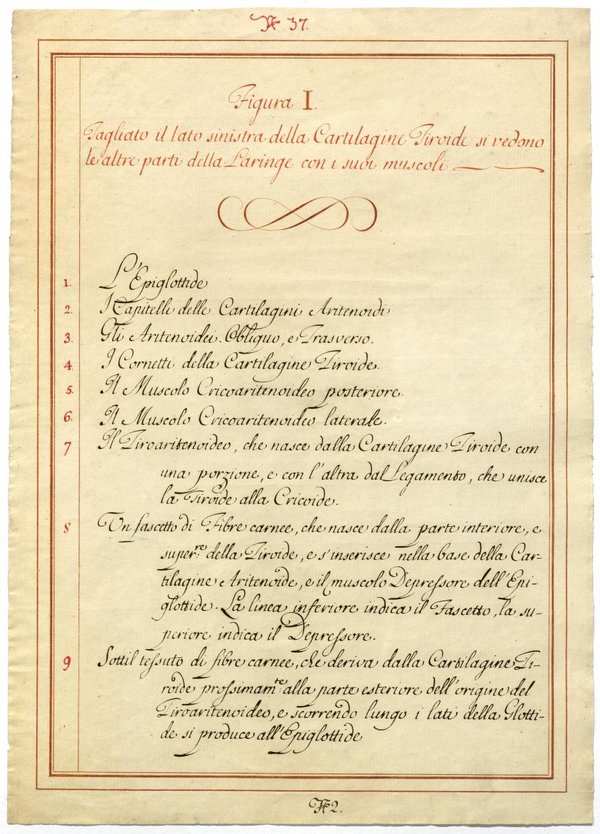 N 37.
Figura I.
Tagliato il lato sinistra della Cartilagine Tiroide si vedono
le altre parti della Laringe con i suoi muscoli
1. L'Epiglottide
2. I Capitelli delle Cartilagini Aritenoidi
3. Gli Aritenoidei. Obliquo, e Trasverso.
4. I Cornetti della Cartilagine Tiroide.
5. Il Muscolo Cricoaritenoideo posteriore.
6. Il Muscolo Cricoaritenoideo laterale.
7 Il Tiroaritenoideo, che nasce dalla Cartilagine Tiroide con
una porzione, e con l'altra dal Legamento, che unisce
la Tiroide alla Cricoide.
8 Un fascetto di Fibre carnee, che nasce dalla parte interiore, e
super.re della Tiroide, e s'inserisce nella base della Car-
tilagine Aritenoide, e il muscolo Depressore dell'Epi-
glottide. La linea inferiore indica il Fascetto, la su-
periore indica il Depressore.
9 Sottil tessuto di fibre carnee, che deriva dalla Cartilagine Ti-
roide prossimam.te alla parte esteriore dell'origine del
Tiroaritenoideo, e scorrendo lungo i lati della Glotti-
de si produce all'Epiglottide
N 2.